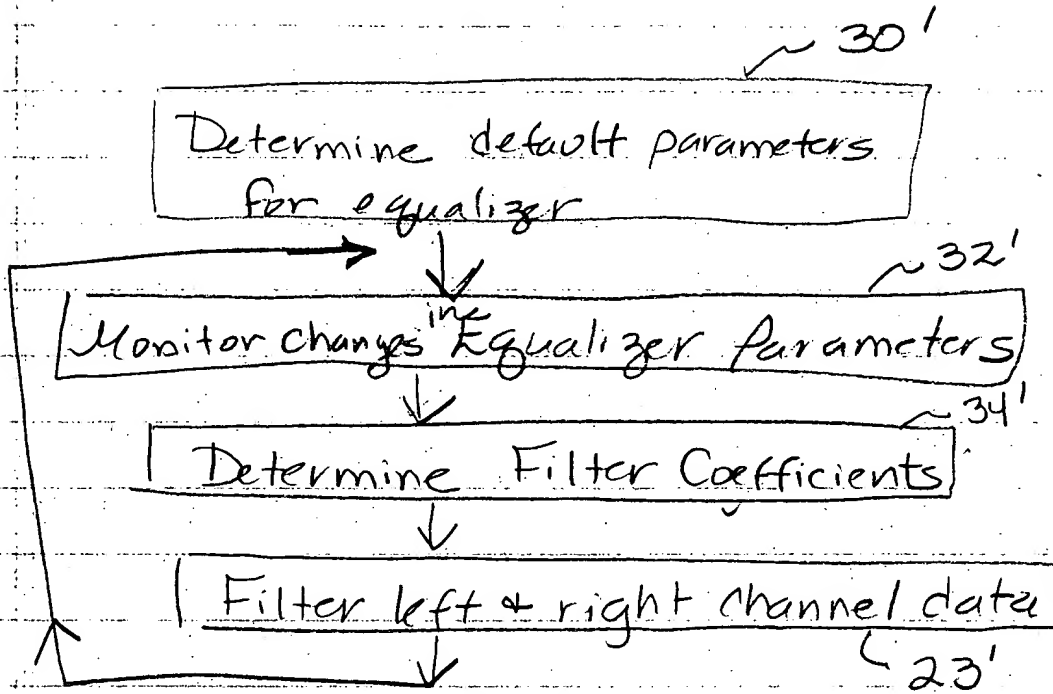 30'
Determine default parameters
for equalizer
32'
Monitor changes in Equalizer Parameters
34'
Determine Filter Coefficients
Filter left & right channel data
23'